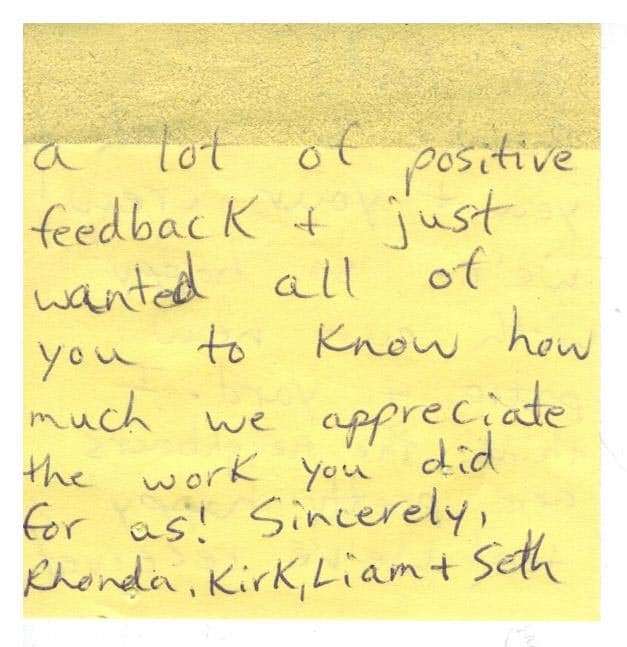 a lot of positive
feedback + just
wanted all of
you to know how
much we appreciate
the work you did
for as! Sincerely,
Rhonda, Kirk, Liam + Seth